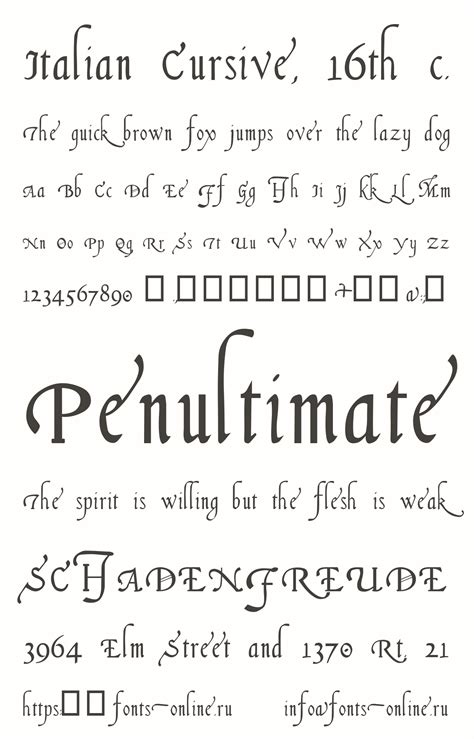 Italian Cursive, 16th c.
The quick brown fox jumps over the lazy dog
Aa Bb Cc Dd Ee Ff Gg Hh Ii Jj Kk Ll Mm
Nn Oo Pp Qq Rr Ss Tt Uu Vv Ww Xx Yy Zz
1234567890 □ .□□□□□□□ +□□ @;□
Penultimate
The spirit is willing but the flesh is weak
SCHADENFREUDE
3964 Elm Street and 1370 Rt. 21
https:□□fonts-online.ru info@fonts-online.ru